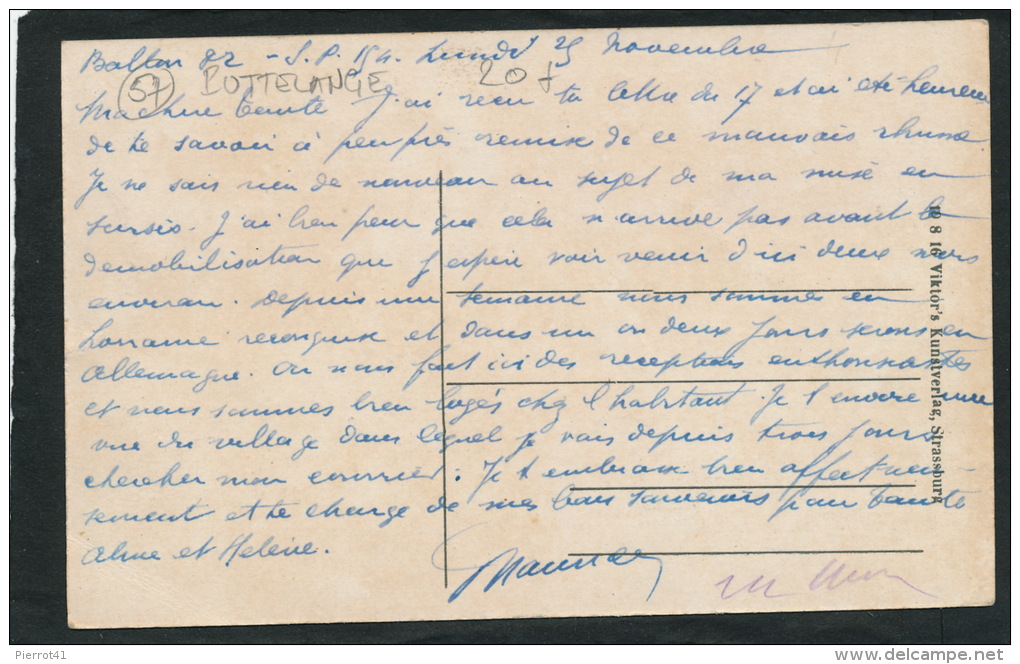 Ballon 82 - S.P. 154. Lundi 25 Novembre
57 BUTTELANGE 20 f
Ma chère tante J'ai reçu ta lettre du 17 et ai été heureux
de te savoir à peu près remise de ce mauvais rhume.
Je ne sais rien de nouveau au sujet de ma mise en
sursis. J'ai bien peur que cela n'arrive pas avant la
demobilisation que j'espère voir venir d'ici deux mois
environ. Depuis une semaine nous sommes en
Lorraine reconquise et dans un ou deux jours serons en
Allemagne. On nous fait ici des receptions enthousiastes
et nous sommes bien logés chez l'habitant. Je t'envoie une
vue du village dans lequel je vais depuis trois jours
chercher mon courrier. Je t'embrasse bien affectueu-
sement et te charge de mes bons souvenirs pour tante
Aline et Helène.
Maurice
18 8 16 Viktor's Kunstverlag, Strassburg
Pierrot41
www.delcampe.net